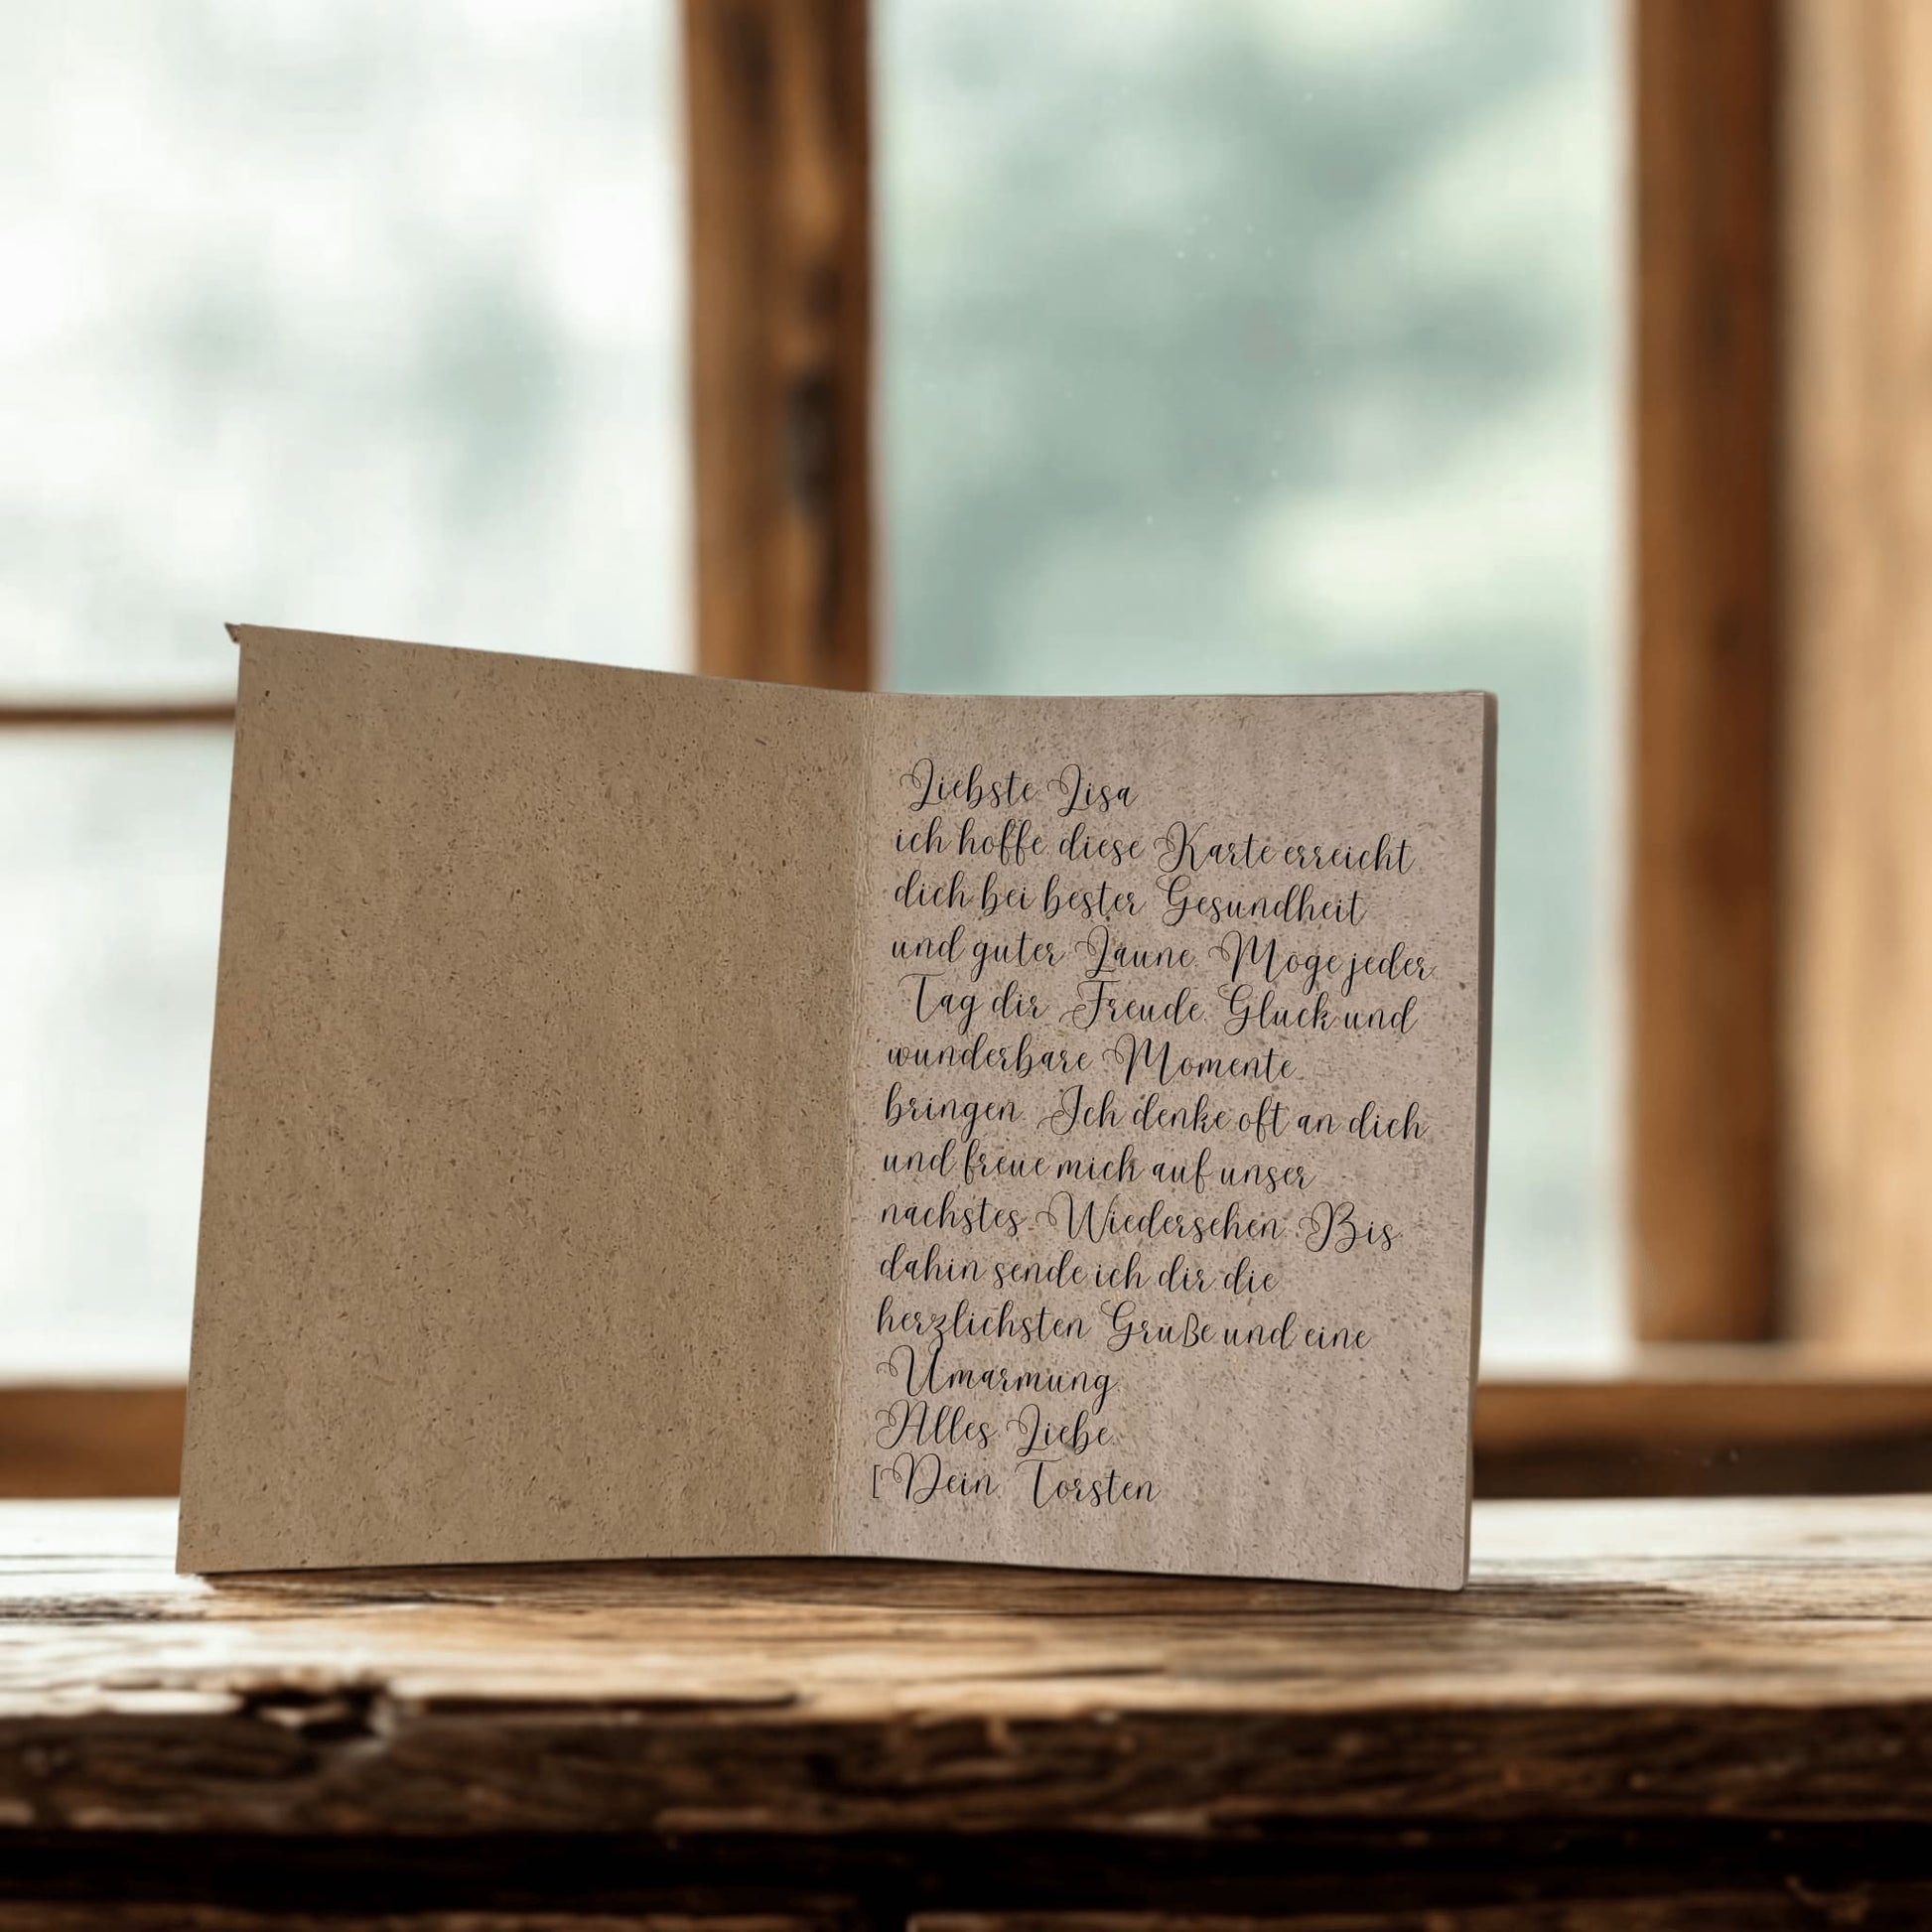 Liebste Lisa
ich hoffe diese Karte erreicht
dich bei bester Gesundheit
und guter Laune. Moge jeder
Tag dir Freude. Gluck und
wunderbare Momente
bringen. Ich denke oft an dich
und freue mich auf unser
nachstes Wiedersehen. Bis
dahin sende ich dir die
herzlichsten Gruße und eine
Umarmung.
Alles Liebe.
[Dein Torsten